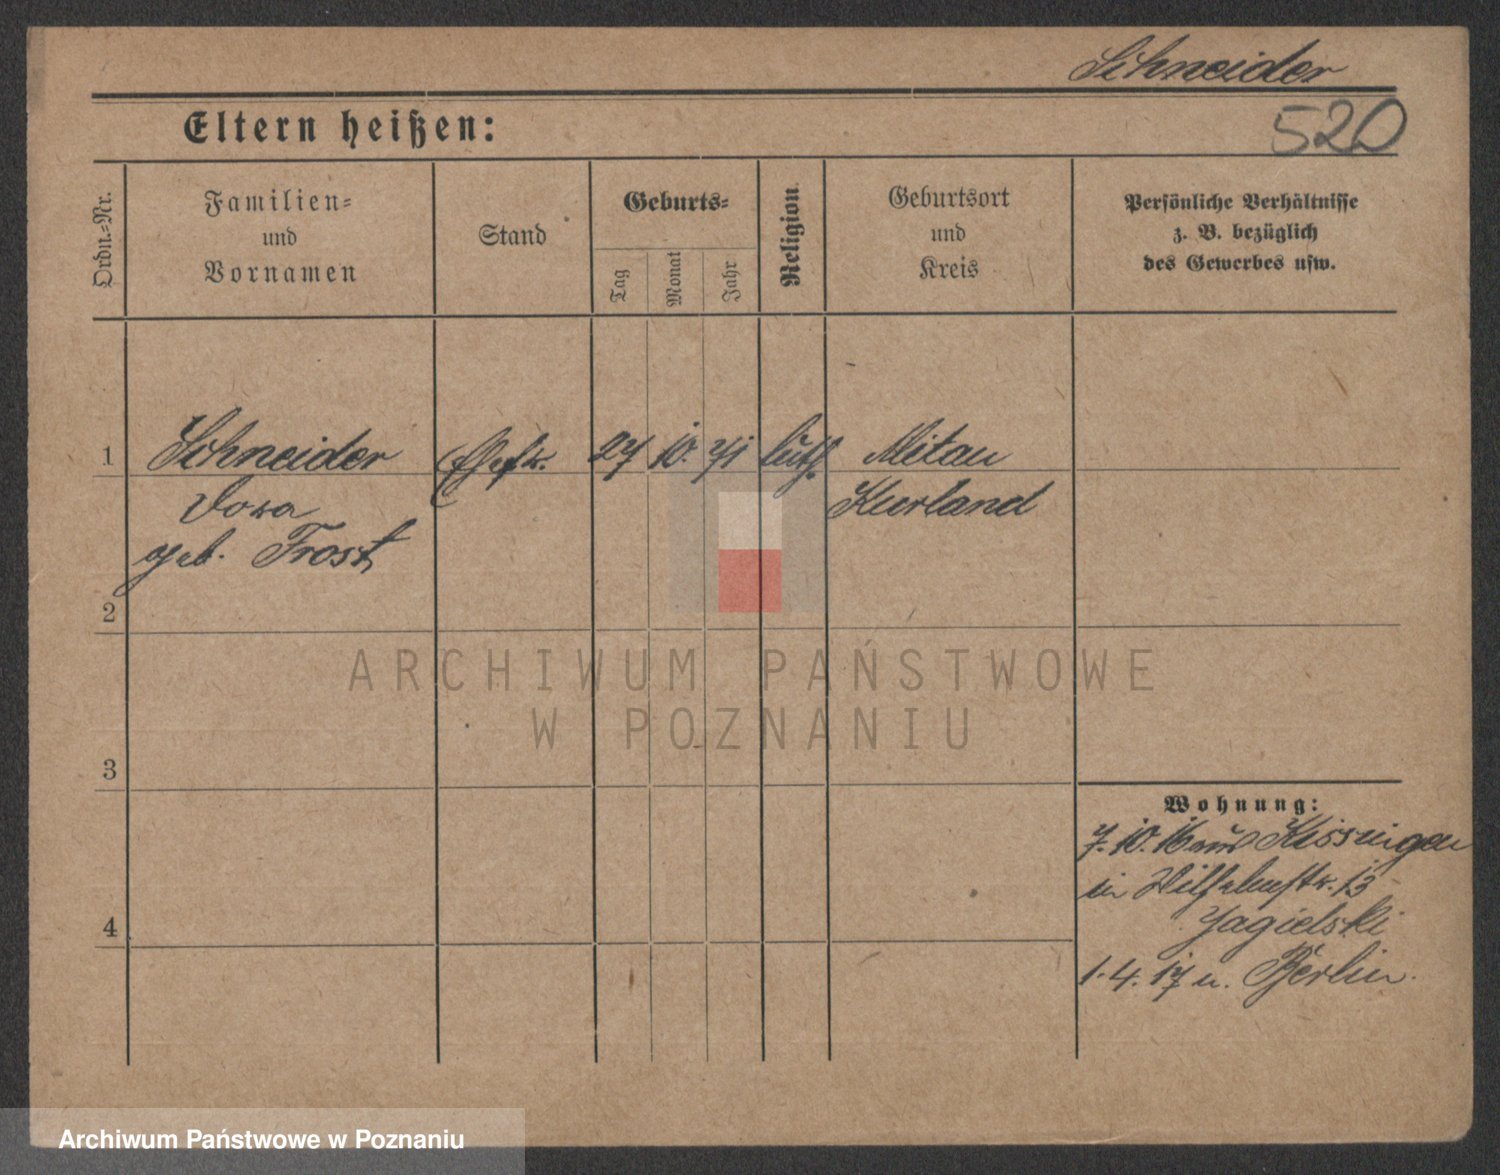 Schneider
520
Eltern heißen:
Ordn.-Nr.
Familien-
und
Vornamen
Stand
Geburts-
Tag
Monat
Jahr
Religion
Geburtsort
und
Kreis
Persönliche Verhältnisse
z. B. bezüglich
des Gewerbes usw.
1 Schneider Ehefr. 27 10. 71 luth. Mitau
Dora Kurland
geb. Frost
2
ARCHIWUM PAŃSTWOWE
W POZNANIU
3
Wohnung:
7. 10. 16 aus Kissingen
in Wilhelmstr. 13
Jagielski
4
1. 4. 17 n. Berlin.
Archiwum Państwowe w Poznaniu